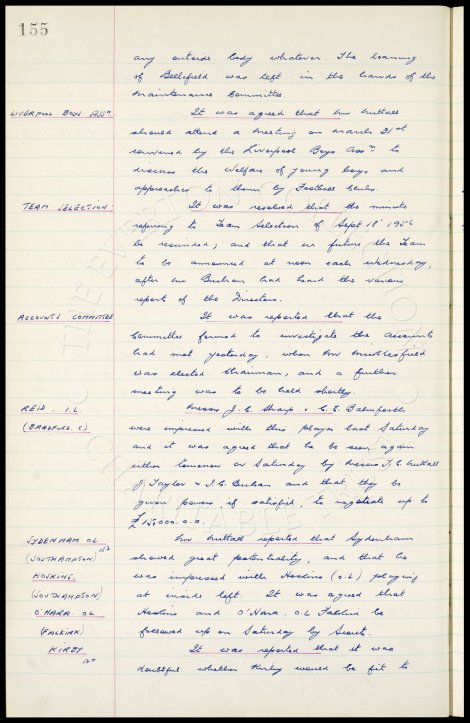 155
any outside body whatever. The leaning
of Bellefield was left in the hands of the
Maintenance Committee
LIVERPOOL BOYS ASSn. It was agreed that Mr Nuttall
should attend a meeting on March 21st
convened by the Liverpool Boys Assn to
discuss the Welfare of young boys and
approaches to them by Football Clubs.
TEAM SELECTION. It was resolved that the minute
referring to Team Selection of Sept 18 1956
be rescinded, and that in future the Team
to be announced at noon each Wednesday,
after Mr Buchan had heard the various
report of the Directors.
ACCOUNTS COMMITTEE It was reported that the
Committee formed to investigate the accounts
had met yesterday, when Mr Micklesfield
was elected Chairman, and a further
meeting was to be held shortly.
REID. I.L. Messrs J.C. Sharp & C.E. Balmforth
(BRADFORD. C) were impressed with this player last Saturday
and it was agreed that he be seen again
either tomorrow or Saturday by Messrs T.C. Nuttall
J. Taylor & I.C. Buchan and that they be
given powers, if satisfied, to negotiate up to
£15000.0.0.
SYDENHAM O.L Mr Nuttall reported that Sydenham
(SOUTHAMPTON) showed great potentiality, and that he
HOSKINS. was impressed with Hoskins (O.L) playing
(SOUTHAMPTON) at inside left. It was agreed that
O'HARA. O.L Hoskins and O'Hara. O.L Falkirk be
(FALKIRK) followed up on Saturday by Scouts.
KIRBY It was reported that it was
124 doubtful whether Kirby would be fit to